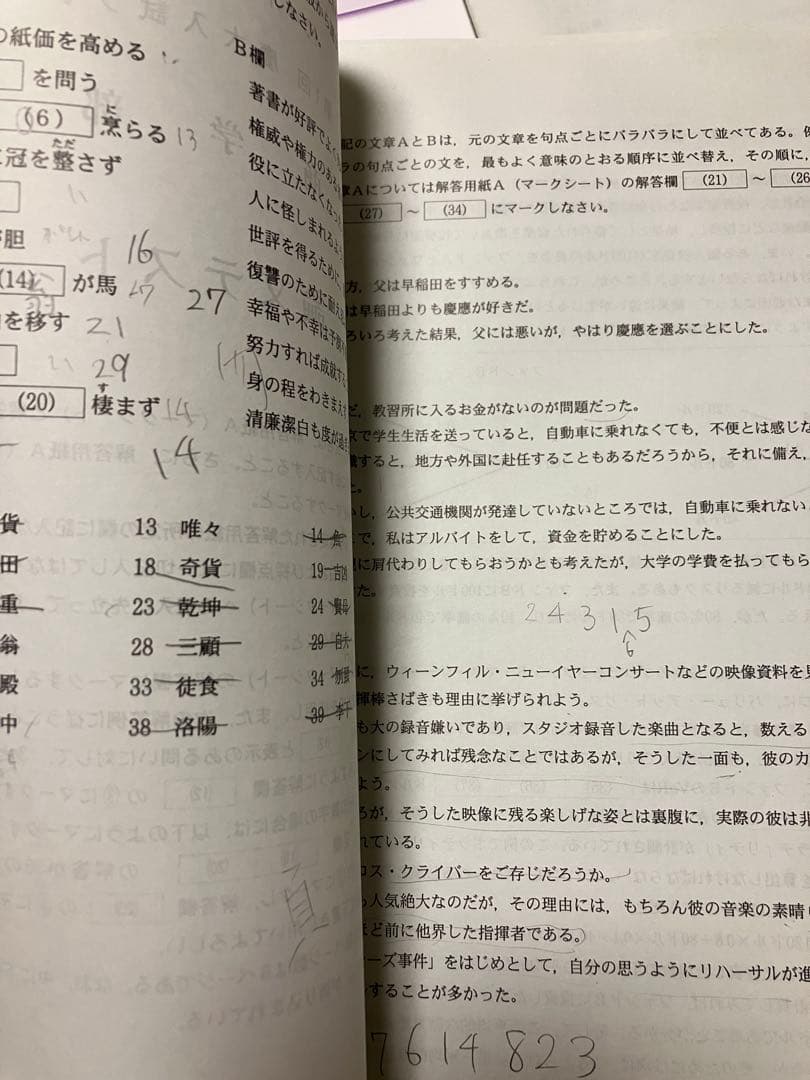 の紙価を高める
を問う
(6) 烹らる 13
に
冠を整さず
ただ
が胆
16
(14) が馬 27
を移す 21
29
(20) 棲まず 14
す
14
B欄
著書が好評でよく
権威や権力のある
役に立たなくなった
人に怪しまれるよ
世評を得るために
復讐のために耐え
幸福や不幸は予測
努力すれば成就する
身の程をわきまえ
清廉潔白も度が過
貨 13 唯々 14
田 18 奇貨 19 吉凶
重 23 乾坤 24 賢母
翁 28 三顧 29 自大
殿 33 徒食 34 刎頸
中 38 洛陽 39 李下
記の文章AとBは，元の文章を句点ごとにバラバラにして並べてある。
ラの句点ごとの文を，最もよく意味のとおる順序に並べ替え，その順に，
章Aについては解答用紙A（マークシート）の解答欄 (21) ～ (26
(27) ～ (34) にマークしなさい。
方，父は早稲田をすすめる。
は早稲田よりも慶應が好きだ。
ろいろ考えた結果，父には悪いが，やはり慶應を選ぶことにした。
だ，教習所に入るお金がないのが問題だった。
京で学生生活を送っていると，自動車に乗れなくても，不便とは感じな
職すると，地方や外国に赴任することもあるだろうから，それに備え，
た。
かし，公共交通機関が発達していないところでは，自動車に乗れない
で，私はアルバイトをして，資金を貯めることにした。
に肩代わりしてもらおうかとも考えたが，大学の学費を払ってもら
た。
24315
6
に，ウィーンフィル・ニューイヤーコンサートなどの映像資料を見
揮棒さばきも理由に挙げられよう。
も大の録音嫌いであり，スタジオ録音した楽曲となると，数える
ンにしてみれば残念なことではあるが，そうした一面も，彼のカ
よう。
ろが，そうした映像に残る楽しげな姿とは裏腹に，実際の彼は非
れている。
ロス・クライバーをご存じだろうか。
人気絶大なのだが，その理由には，もちろん彼の音楽の素晴
ほど前に他界した指揮者である。
ーズ事件」をはじめとして，自分の思うようにリハーサルが進
することが多かった。
7614823